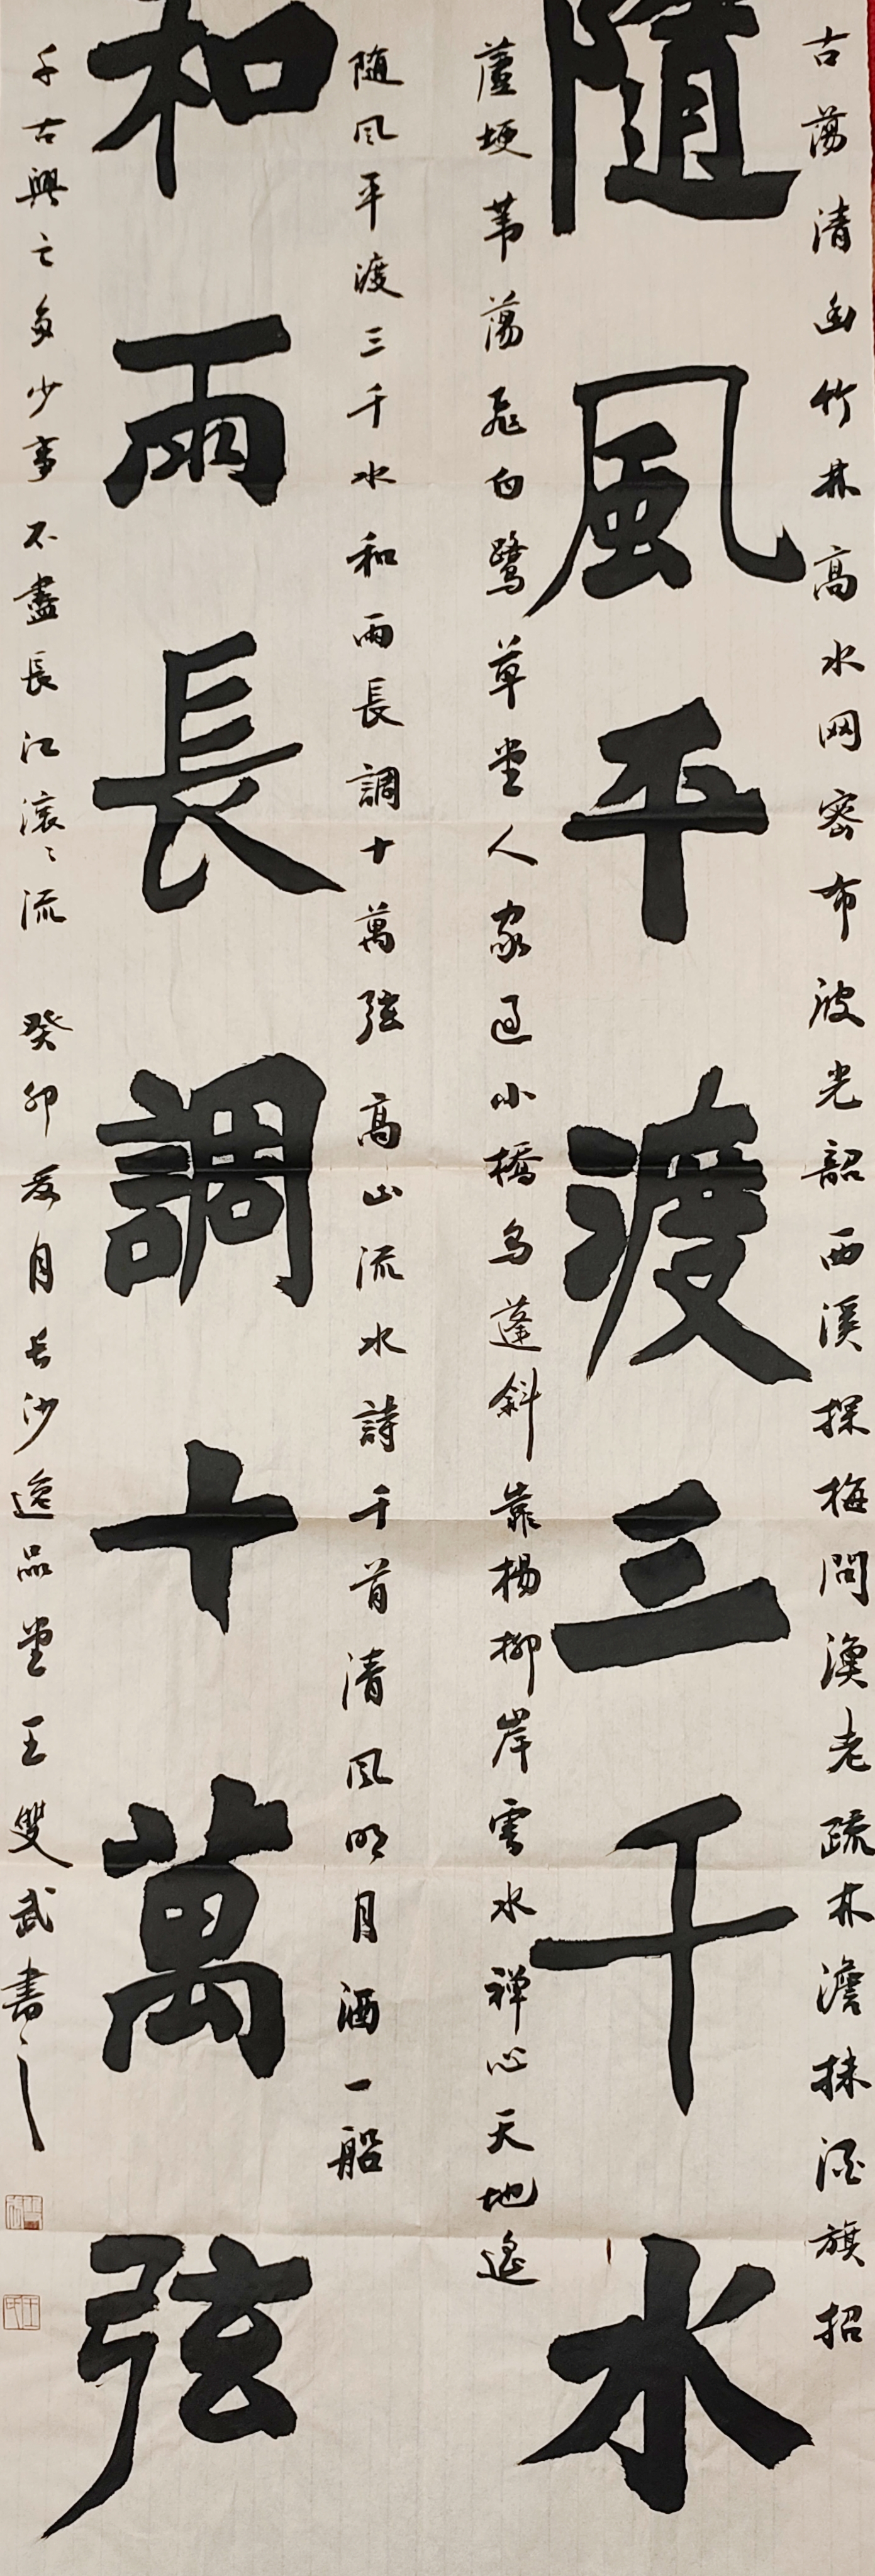 古蕩清幽竹林高水网密布波光韶西溪探梅問漁老疏林澹抹酒旗招
隨風平渡三千水
蘆埂苇蕩飛白鷺草堂人家過小橋烏蓬斜靠楊柳岸雲水禅心天地遙
随風平渡三千水和雨長調十萬弦高山流水詩千首清風明月酒一船
和雨長調十萬弦
千古興亡多少事不盡長江滾〻流 癸卯夏月长沙逸品堂王雙武書之